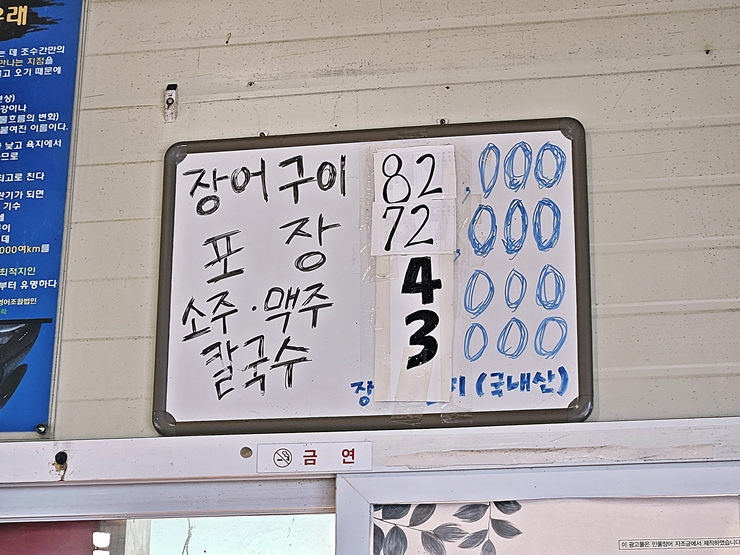 래
는 데 조수간만의
만나는 지점을
고 오기 때문에
강이나
물흐름의 변화)
붙여진 이름이다.
낮고 육지에서
므로
되고로 친다
란기가 되면
기수
데
000여km를
최적지인
부터 유명하다
영어조합법인
장어구이 82,000
포 장 72,000
소주·맥주 4000
칼국수 3000
장 (국내산)
금 연
이 광고물은 민물장어 자조금에서 제작하였습니다